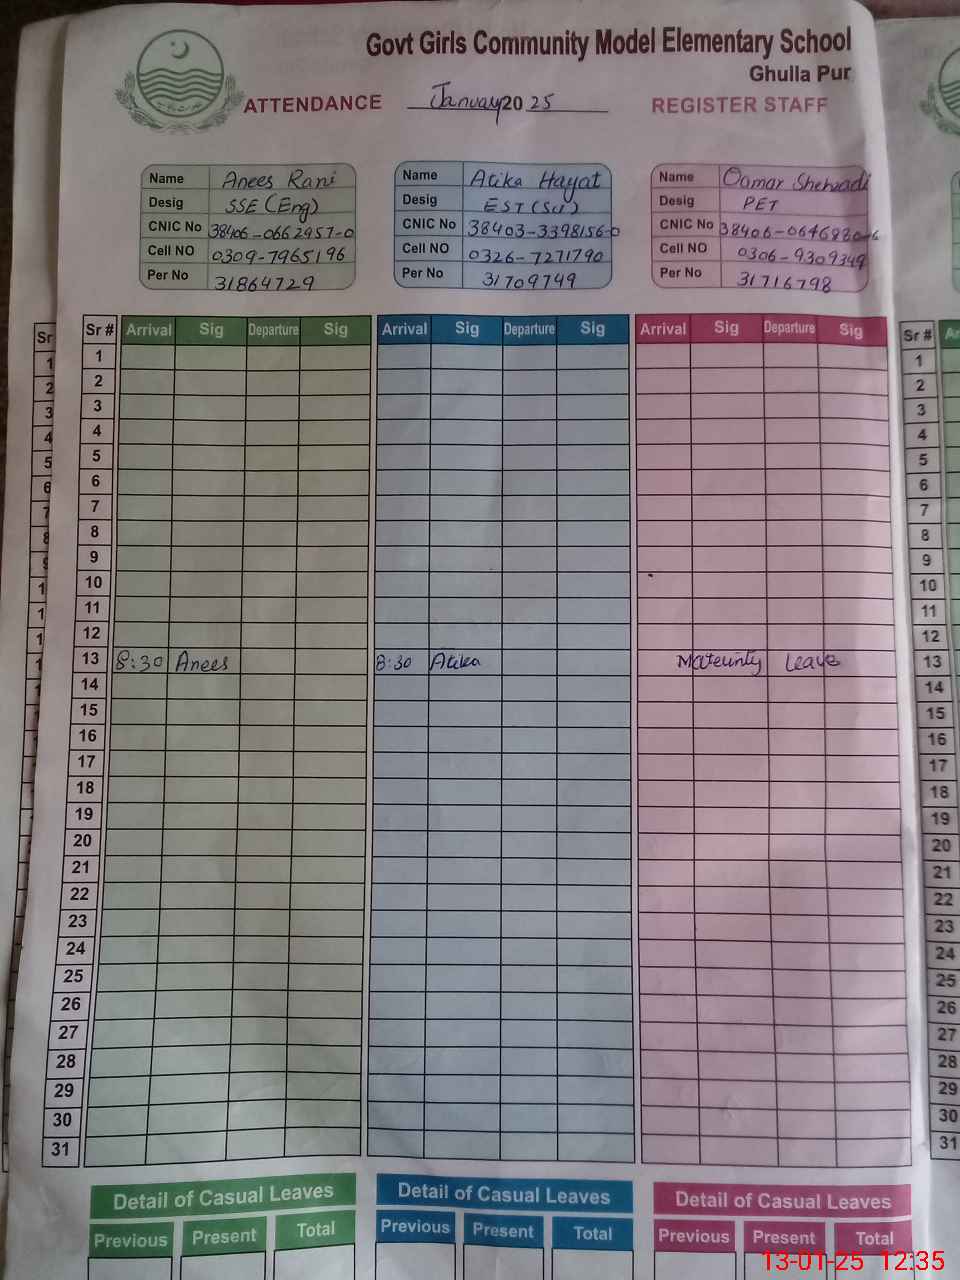 Govt Girls Community Model Elementary School
Ghulla Pur
ATTENDANCE January 2025 REGISTER STAFF
Name Anees Rani
Desig SSE (Eng)
CNIC No 38406-0662957-0
Cell NO 0309-7965196
Per No 31864729
Name Atika Hayat
Desig EST (Sci)
CNIC No 38403-3398156-0
Cell NO 0326-7271790
Per No 31709749
Name Qamar Shehzadi
Desig PET
CNIC No 38406-0646880-6
Cell NO 0306-9309349
Per No 31716798
Sr # Arrival Sig Departure Sig Arrival Sig Departure Sig Arrival Sig Departure Sig
1
2
3
4
5
6
7
8
9
10
11
12
13 8:30 Anees 8:30 Atika Maternity Leave
14
15
16
17
18
19
20
21
22
23
24
25
26
27
28
29
30
31
Detail of Casual Leaves Detail of Casual Leaves Detail of Casual Leaves
Previous Present Total Previous Present Total Previous Present Total
Sr
1
2
3
4
5
6
7
8
Sr #
1
2
3
4
5
6
7
8
9
10
11
12
13
14
15
16
17
18
19
20
21
22
23
24
25
26
27
28
29
30
31
13-01-25 12:35